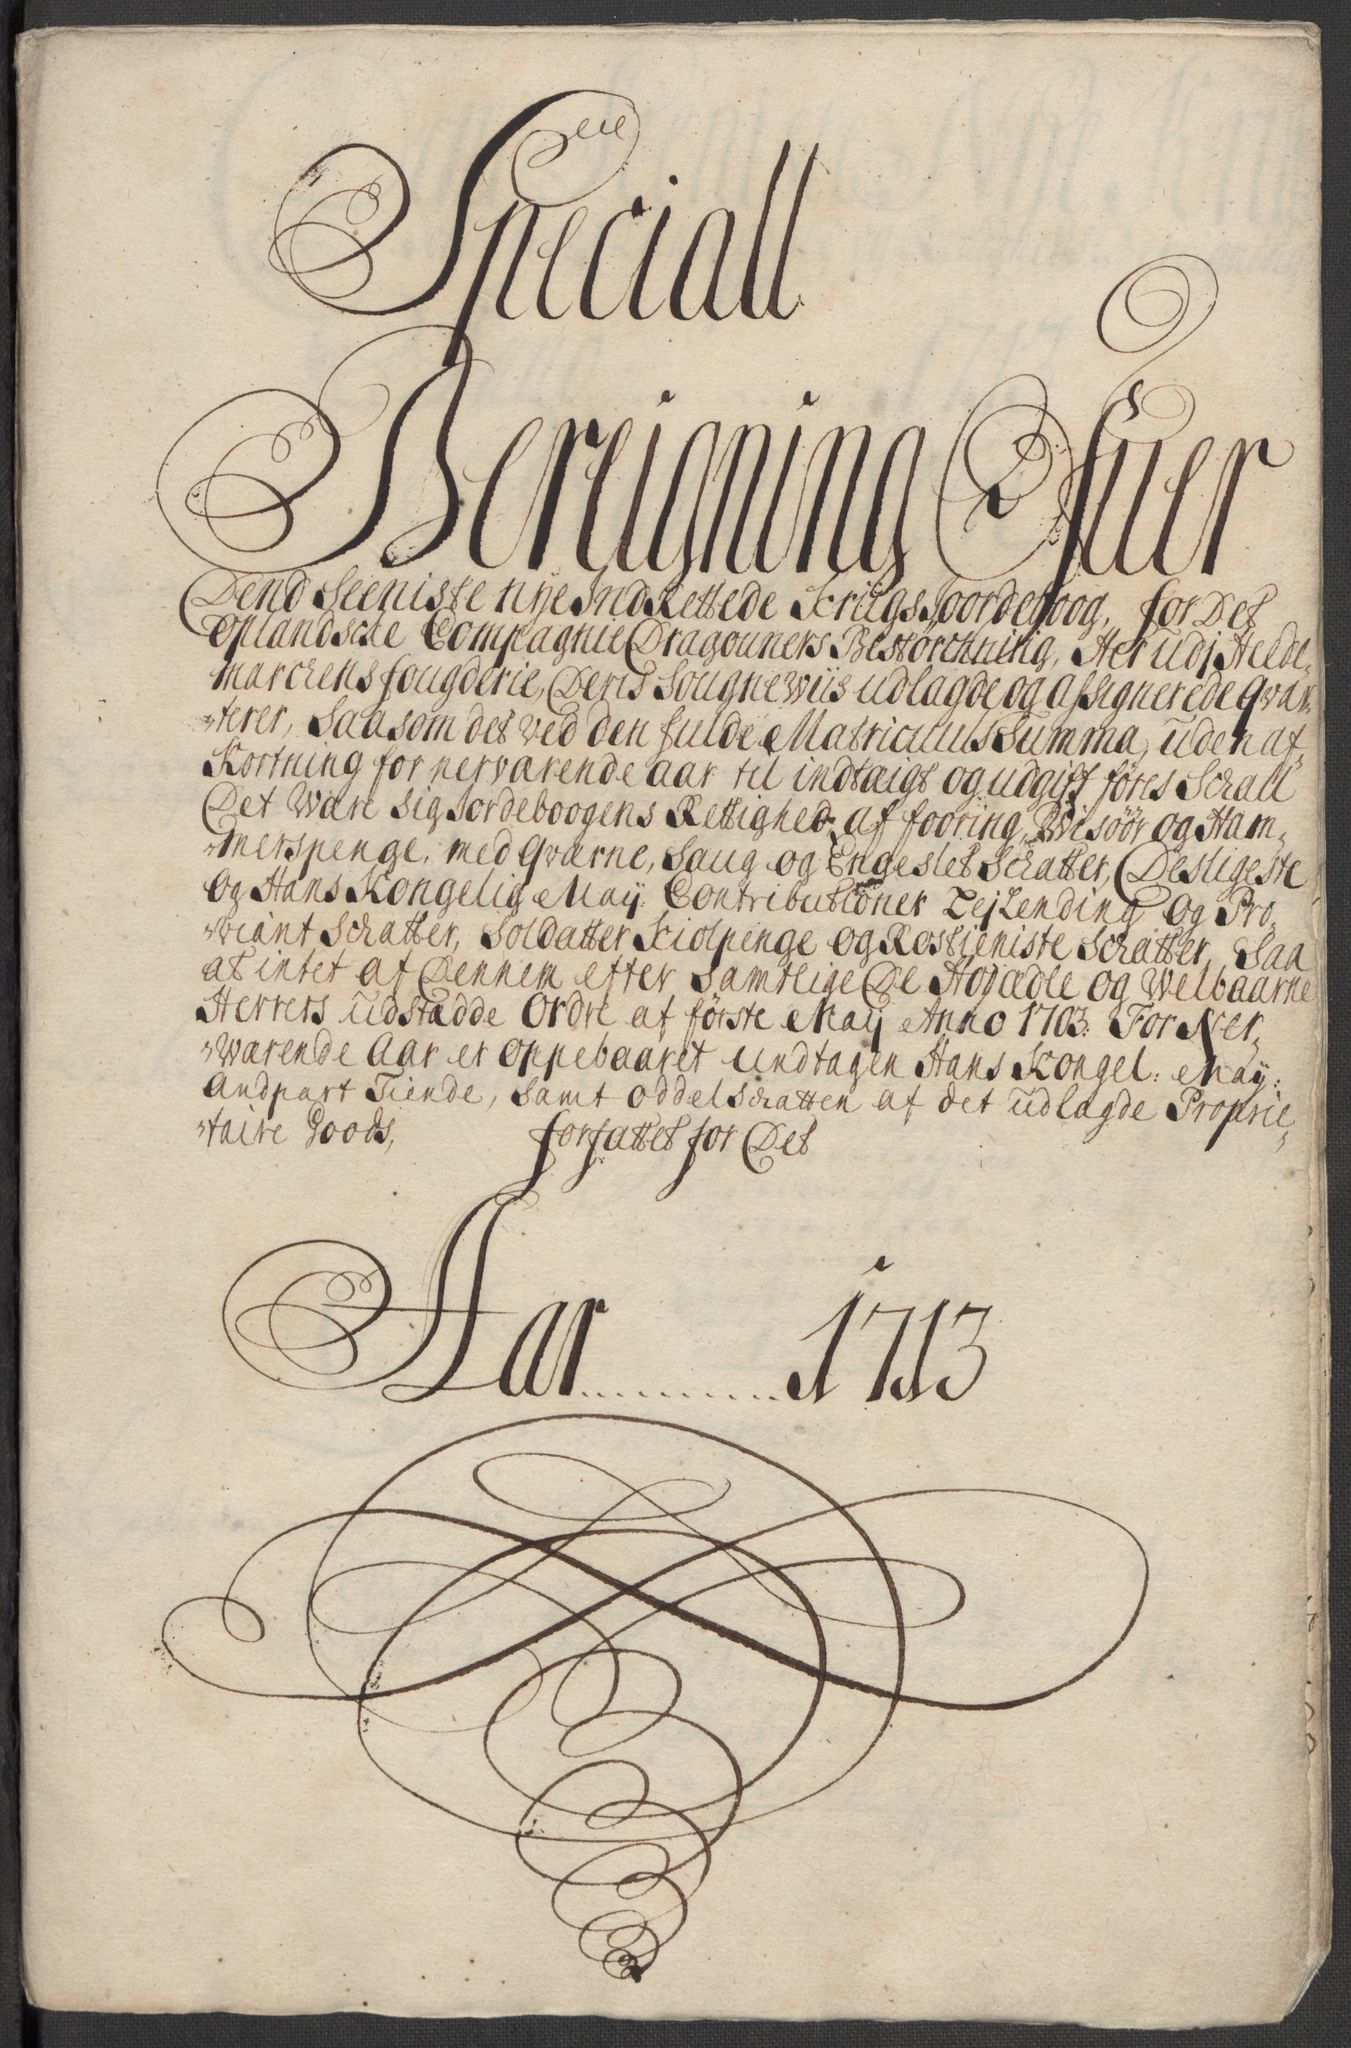 Speciall
Bereigning Ofuer
Dend Seeniste nye IndRettede KriigsJoordeboog, for Det
Oplandsche Compagnie Dragouners Bestørchning, Her udj Hede,
marchens fougderie, Deris Sougneviis udlagde og assignerede qvar,
terer, Saasom det ved den fulde Matriculs Summa, uden af,
Kortning for nerværende aar til indtaigt og udgift føres Schall
Det være sig Jordeboogens Rettighed af fooring, Wisøør og Ham,
merspenge, med Qvarne, Saug og Engeslet Schatter, Desligeste
og Hans Kongelig May: Contributioner Lejlending og Pro,
viant Schatter, Soldatter Kiolpenge og Rostieniste Schatter, Saa
at intet af Dennem efter Samtlige De Høyædle og Welbaarne
Herrers udstædde Ordre af første May Anno 1703: For Ner,
værende Aar er oppebaaret undtagen Hans Kongel: May:
Andpart Tiende, Samt Oddelschatten af det udlagde Proprie,
taire Goods, forfattet for Det
Aar 1713